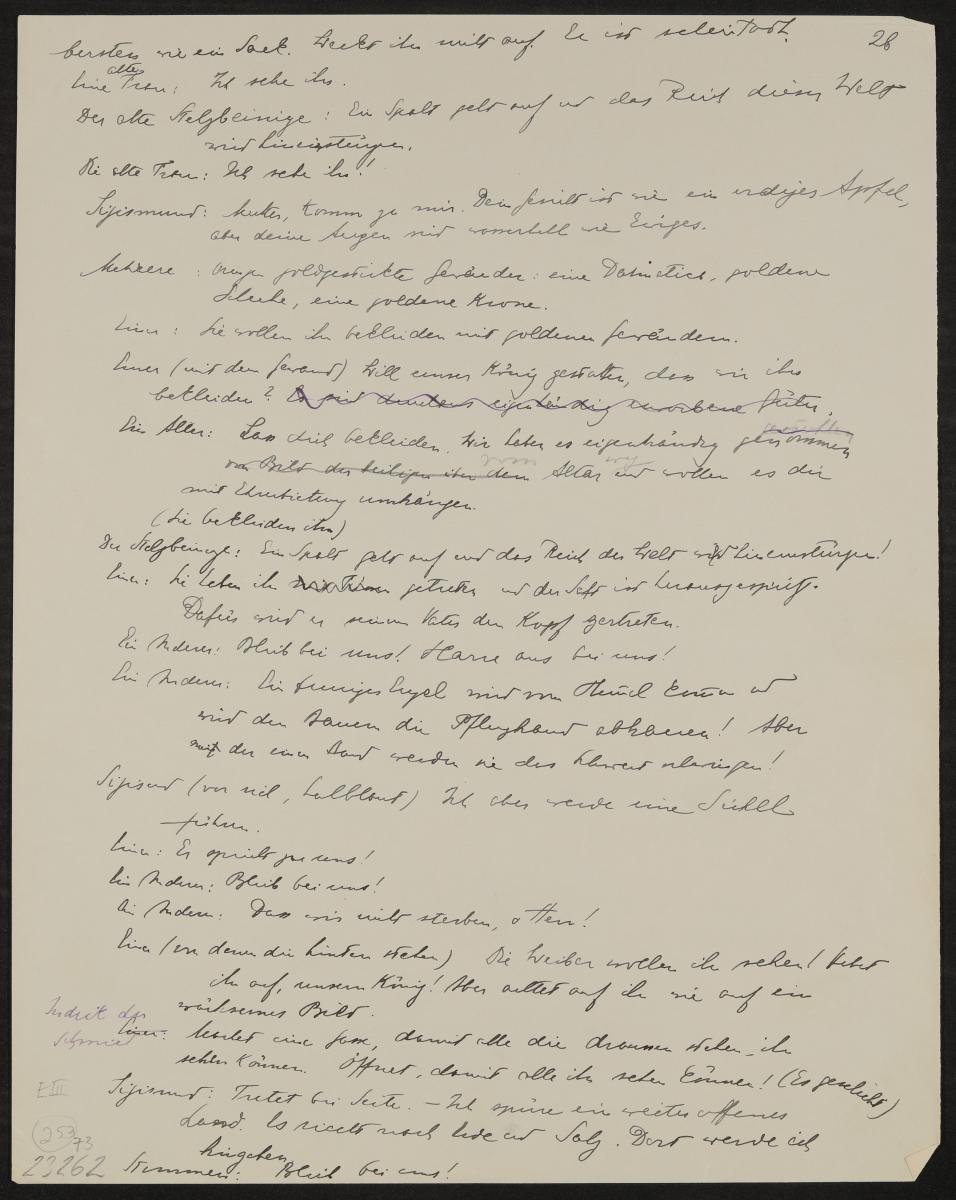 26
bersten wie ein Sack. Weckt ihn nicht auf. Er ist scheintodt.
Eine alte Frau: Ich sehe ihn.
Der alte Stelzbeinige: Ein Spalt geht auf und das Reich dieser Welt
wird hineinstürzen.
Die alte Frau: Ich sehe ihn!
Sigismund: Mutter, komm zu mir. Dein Gesicht ist wie ein erdiges Apfel,
aber deine Augen sind wasserhell wie Ewiges.
Mehrere: bringen goldgestickte Gewänder: eine Dalmatica, goldene
Schuhe, eine goldene Krone.
Einer: Sie wollen ihn bekleiden mit goldenen Gewändern.
Einer (mit dem Gewand) Will unser König gestatten, dass wir ihn
bekleiden? Es sind durchaus eigenhändig erworbene Güter.
Ein Alter: Lass dich bekleiden. Wir haben es eigenhändig genommen
vom Bild der heiligen über dem vom Altar weg und wollen es dir
mit Ehrerbietung umhängen.
(Sie bekleiden ihn)
Der Stelzbeinige: Ein Spalt geht auf und das Reich der Welt wird hineinstürzen!
Einer: Sie haben ihn getreten und der Saft ist herausgespritzt.
Dafür wird er seinem Vater den Kopf zertreten.
Ein Anderer: Bleib bei uns! Harre aus bei uns!
Ein Anderer: Ein feuriger Engel wird vom Himmel kommen und
wird den Bauern die Pflughand abhauen! Aber
mit der einen Hand werden sie das Schwert schwingen!
Sigismund (vor sich, halblaut) Ich aber werde eine Sichel
führen.
Einer: Er spricht zu uns!
Ein Anderer: Bleib bei uns!
Ein Anderer: Dass wir nicht sterben, o Herr!
Einer (von denen die hinten stehen) Die Weiber wollen ihn sehen! Hebet
ihn auf, unsern König! Aber achtet auf ihn wie auf ein
wächsernes Bild.
Indrik der Schmied
Einer: Machet eine Gasse, damit alle die draussen stehen, ihn
sehen können. Öffnet, damit alle ihn sehen können! (Es geschieht)
Sigismund: Tretet bei Seite. – Ich spüre ein weites offenes
Land. Es riecht nach Erde und Salz. Dort werde ich
hingehen.
Stimmen: Bleib bei uns!
E III
253
73
23262